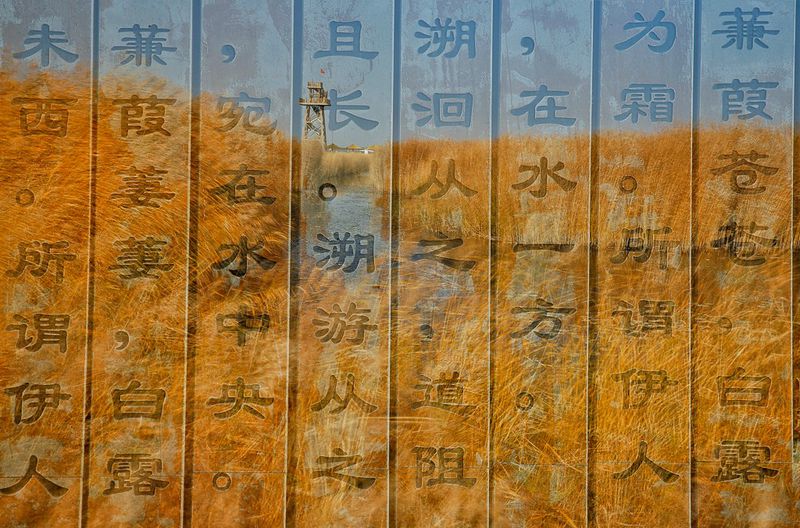 蒹葭苍苍。白露
为霜。所谓伊人
，在水一方。
溯洄从之，道阻
且长。溯游从之
，宛在水中央。
蒹葭萋萋，白露
未西。所谓伊人